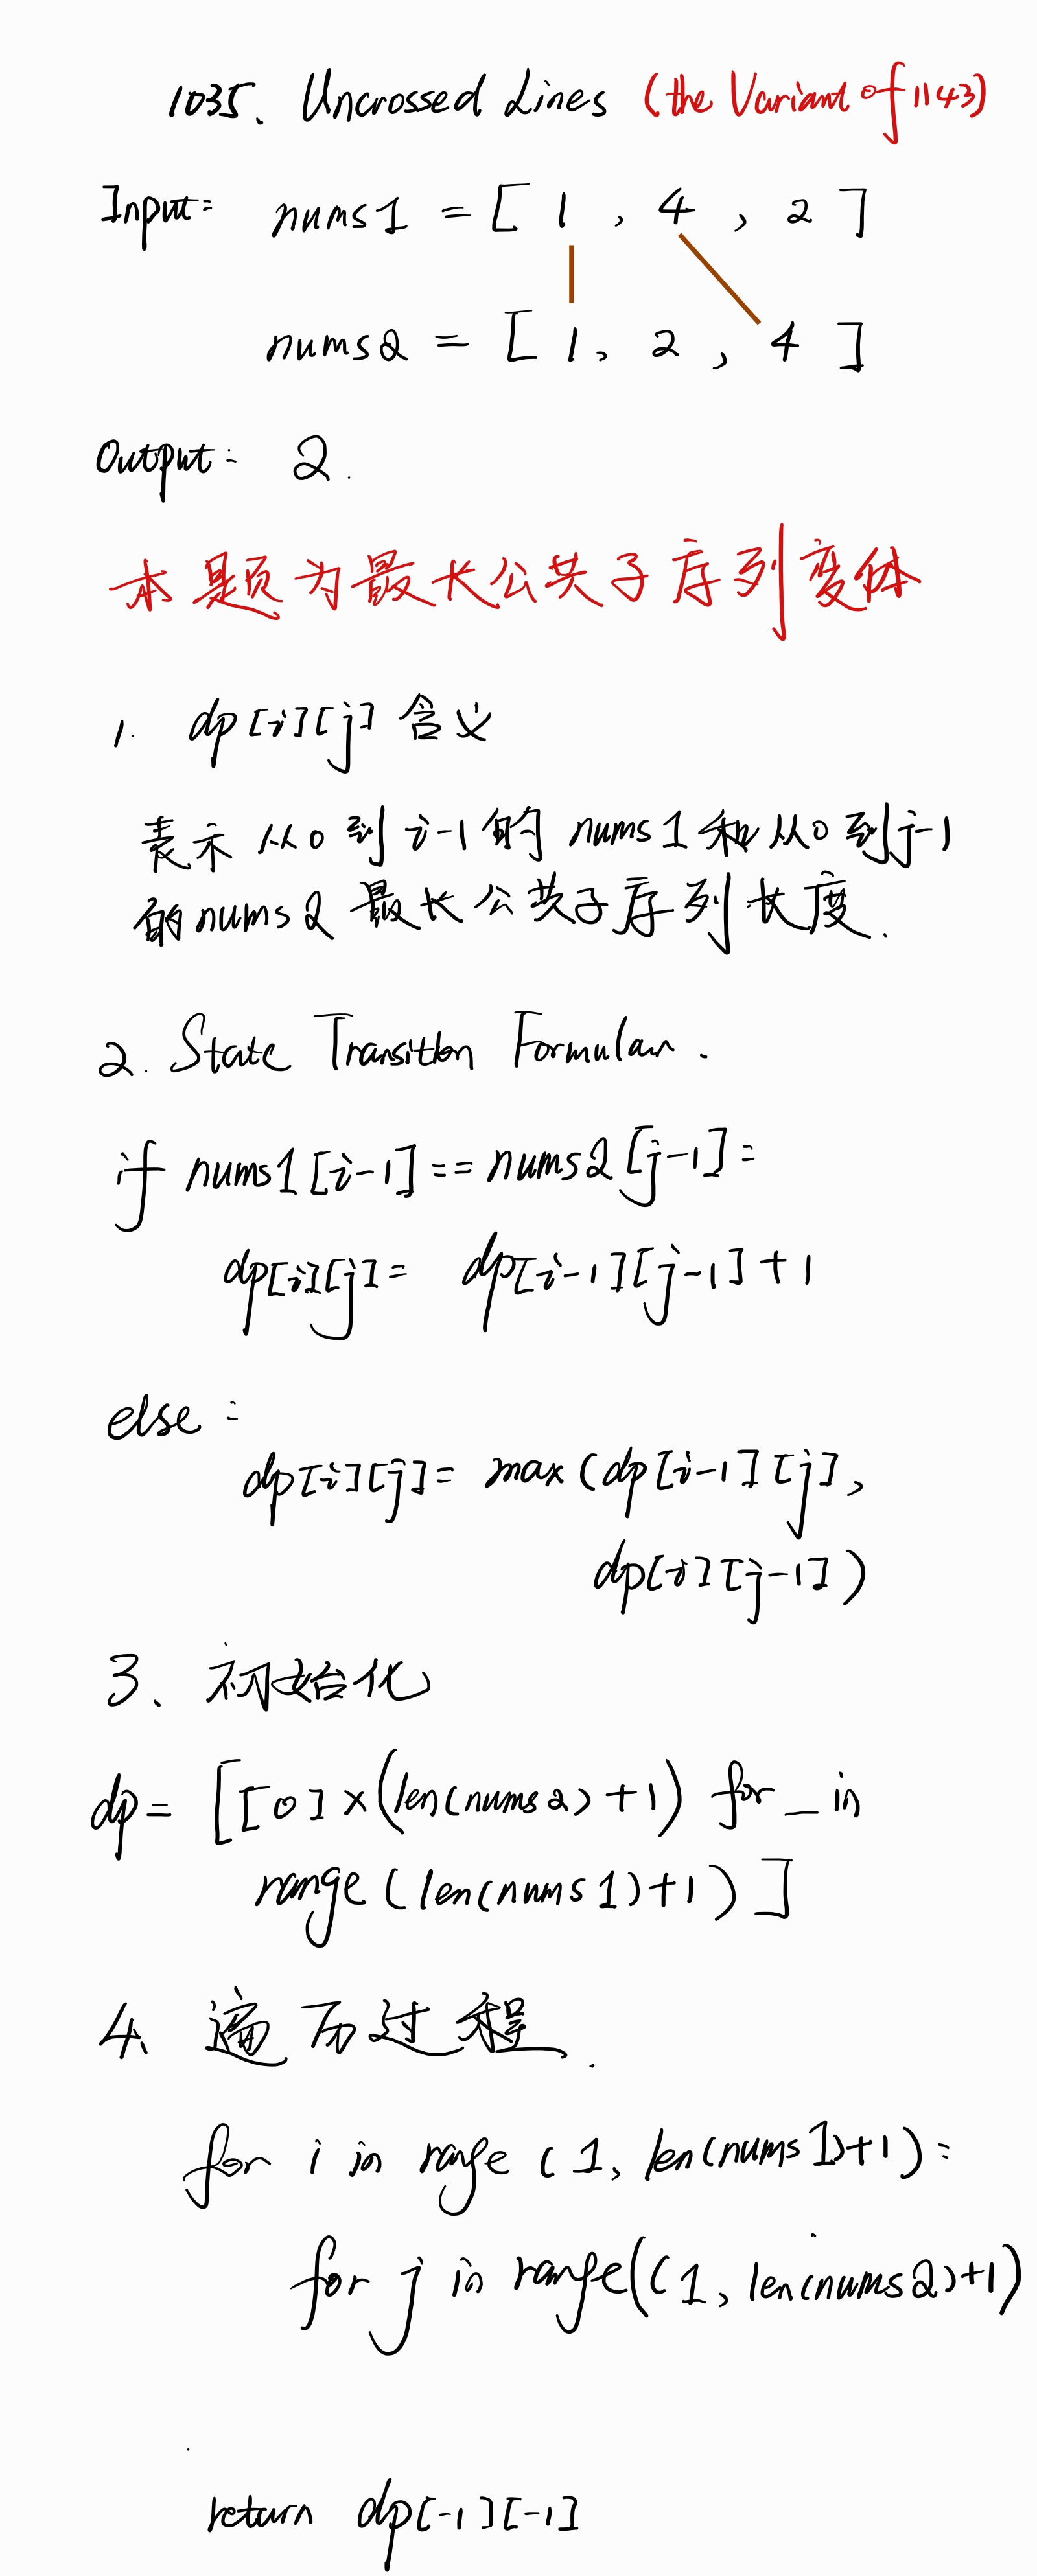 1035、Uncrossed Lines (the Variant of 1143)
Input: nums1 = [ 1 , 4 , 2 ]
nums2 = [ 1, 2 , 4 ]
Output: 2.
本题为最长公共子序列变体
1. dp[i][j] 含义
表示从0到i-1的nums1和从0到j-1
的nums2最长公共子序列长度.
2. State Transition Formular.
if nums1[i-1]==nums2[j-1]:
dp[i][j]= dp[i-1][j-1]+1
else:
dp[i][j]= max(dp[i-1][j],
dp[i][j-1])
3、初始化
dp= [[0]×(len(nums2)+1) for _ in
range(len(nums1)+1)]
4、遍历过程.
for i in range (1, len(nums1)+1):
for j in range((1, len(nums2)+1)
return dp[-1][-1]